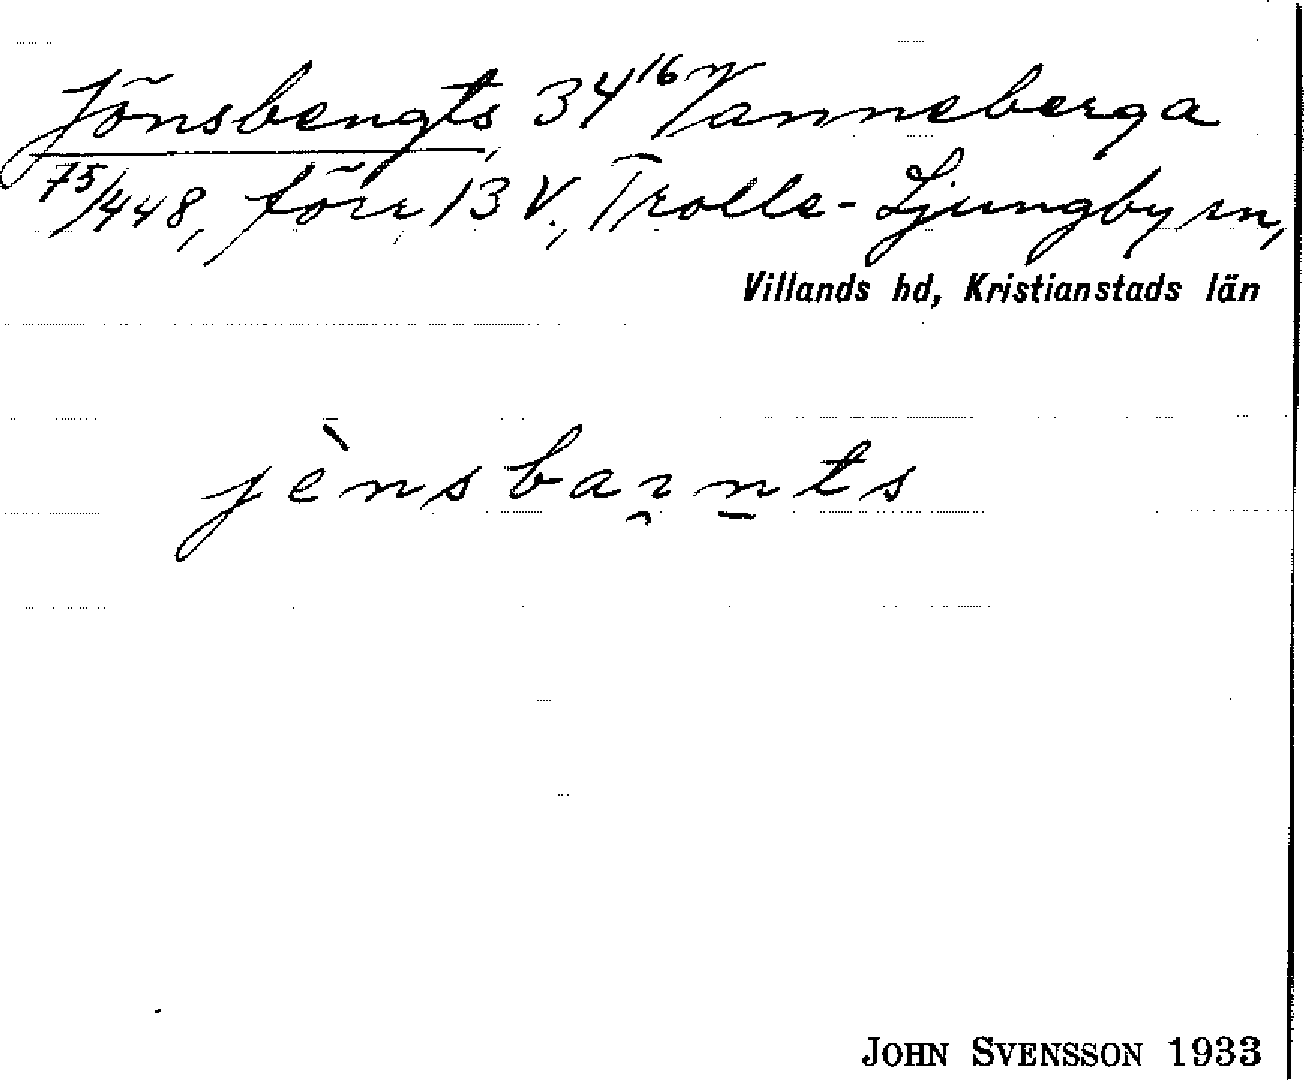 Jönsbengts, 34¹⁶ Vanneberga
75/448, förr 13 V., Trolle-Ljungby sn,
Villands hd, Kristianstads län
jènsbai̯n̠ts
JOHN SVENSSON 1933